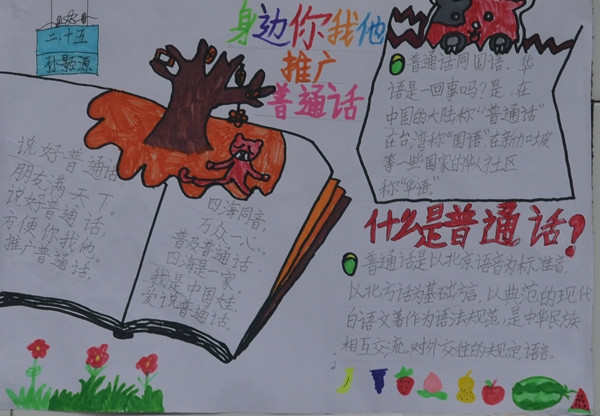 二十五
孙颢源
身边你我他
推广
普通话
普通话同国语、华
语是一回事吗？是、在
中国的大陆称“普通话”
在台湾称“国语”在新加坡
等一些国家的华人社区
称“华语”
说好普通话
朋友满天下
说好普通话，
方便你我他。
推广普通话。
四海同音，
万众一心，
普及普通话，
四海是一家。
我是中国娃
爱说普通话。
什么是普通话？
普通话是以北京语音为标准音
以北方话为基础方言，以典范的现代
白话文著作为语法规范，是中华民族
相互交流对外交往的规定语言。